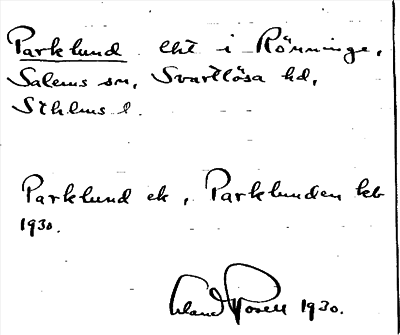 Parklund lht i Rönninge,
Salems sn, Svartlösa hd,
Sthlms l.
Parklund ek, Parklunden kb
1930.
Erland Rosell 1930.